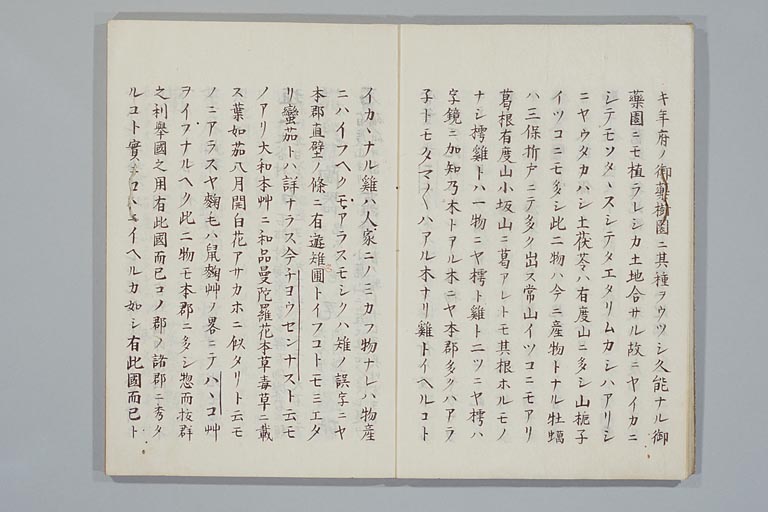 キ年府ノ御藥樹園ニ其種ヲウツシ久能ナル御
藥園ニモ植ラレシカ土地合サル故ニヤイカニ
シテモソタヽスシテタエタリムカシハアリシ
ニヤウタカハシ土茯苓ハ有度山ニ多シ山梔子
イツコニモ多シ此二物ハ今ニ産物トナル牡蠣
ハ三保折戸ニテ多ク出ス常山イツコニモアリ
葛根有度山小坂山ニ葛アレトモ其根ホルモノ
ナシ樗雞トハ一物ニヤ樗ト雞ト二ツニヤ樗ハ
字鏡ニ加知乃木トアル木ニヤ本郡多クハアラ
子トモタマ〱ハアル木ナリ雞トイヘルコト
イカヽナル雞ハ人家ニノミカフ物ナレハ物産
ニハイフヘクモアラスモシクハ雉ノ誤字ニヤ
本郡直壁ノ條ニ有遊雉圃トイフコトモミエタ
リ蠻茄トハ詳ナラス今チヨウセンナスト云モ
ノアリ大和本艸ニ和品曼陀羅花本草毒草ニ載
ス葉如茄八月開白花アサカホニ似タリト云モ
ノニアラスヤ麹毛ハ鼠麹艸ノ畧ニテハヽコ艸
ヲイフナルヘク此二物モ本郡ニ多シ惣而抜群
之利擧國之用有此國而已コノ郡ノ諸郡ニ秀タ
ルコト實ニコヽニイヘルカ如シ有此國而已ト